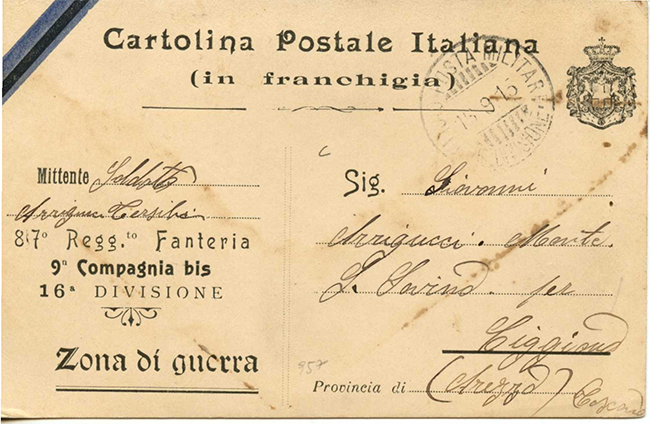 Cartolina Postale Italiana
(in franchigia)
POSTA MILITARE
DIVISIONE
Mittente Soldato
Arrigucci Tersilio
87º Regg.to Fanteria
9ª Compagnia bis
16ª DIVISIONE
Zona di guerra
Sig. Giovanni
Arrigucci. Monte
S. Savino per
Ciggiano
Provincia di (Arezzo) Toscana
957